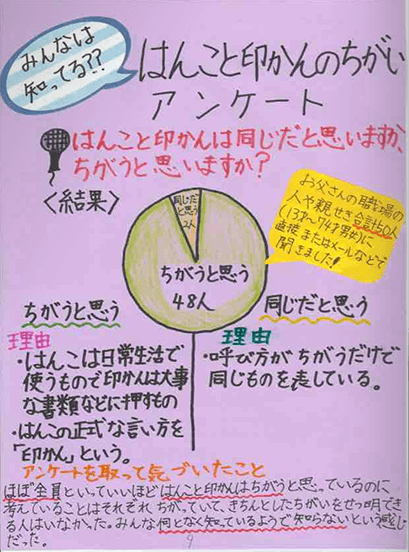 みんなは
知ってる??
はんこと印かんのちがい
アンケート
はんこと印かんは同じだと思いますか、
ちがうと思いますか?
〈結果〉
同じだ
と思う
2人
ちがうと思う
48人
お父さんの職場の
人や親せき合計50人
(13才〜74才男女)に
直接またはメールなどで
聞きました!
ちがうと思う
理由
・はんこは日常生活で
使うもので印かんは大事
な書類などに押すもの
・はんこの正式な言い方を
「印かん」という。
同じだと思う
理由
・呼び方がちがうだけで
同じものを表している。
アンケートを取って気づいたこと
ほぼ全員といっていいほどはんこと印かんはちがうと思っているのに
考えていることはそれぞれちがっていて、きちんとしたちがいをせつ明でき
る人はいなかった。みんな何となく知っているようで知らないという感じ
だった。
9